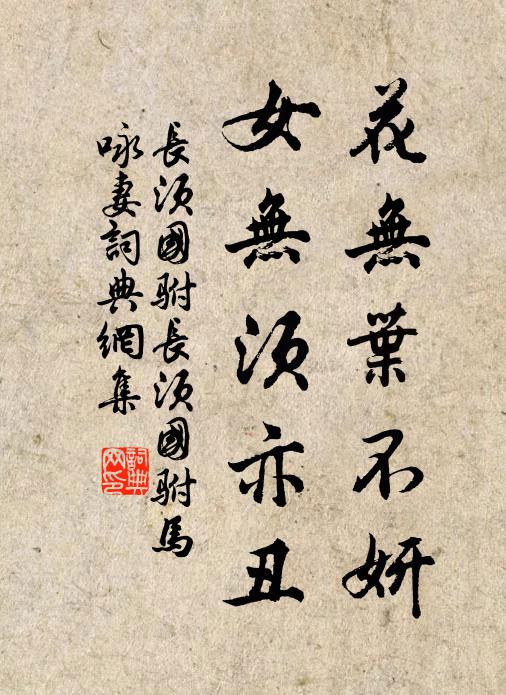 花無葉不妍
女無須亦丑
長須國駙長須國駙馬
咏妻詞典網集
詞典网印